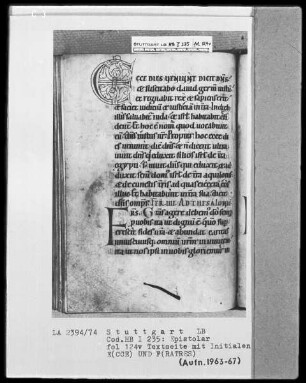 STUTTGART LB HB I 235
ECCE DIES VENIUNT DICIT DNS
et suscitabo david germen iustu
et regnabit rex et sapiens erit
et faciet iudiciu et iusticia in tra. In dieb;
illis salvabit iuda et isrl habitabit confi
denter. Et hoc e nom quod vocabunt
eu dns iustus nr. Propter hoc ecce dies
veniunt dicit dns et n dicent ultra
vivit dns qui eduxit filios isrl de tra
egypti. Sz vivit dns qui eduxit et ad
duxit sem dom isrl de tra aquilonis
et de cunctis tris ad quas eieceram eos
illuc et habitabunt in tra sua. dicit
dns omps. ITE AD THESALONI
Frs. Gras agere debem do semp
p vobis ita ut dignu e qm sup
crescit fides vra et abundat caritas
uniuscuiusq; omniu vrm in invice
ita ut et nos ipsi in vobis gloriemur in
LA 2394/74 Stuttgart LB
Cod.HB I 235: Epistolar
fol 124v Textseite mit Initialen
E(CCE) UND F(RATRES)
(Aufn.1963-67)